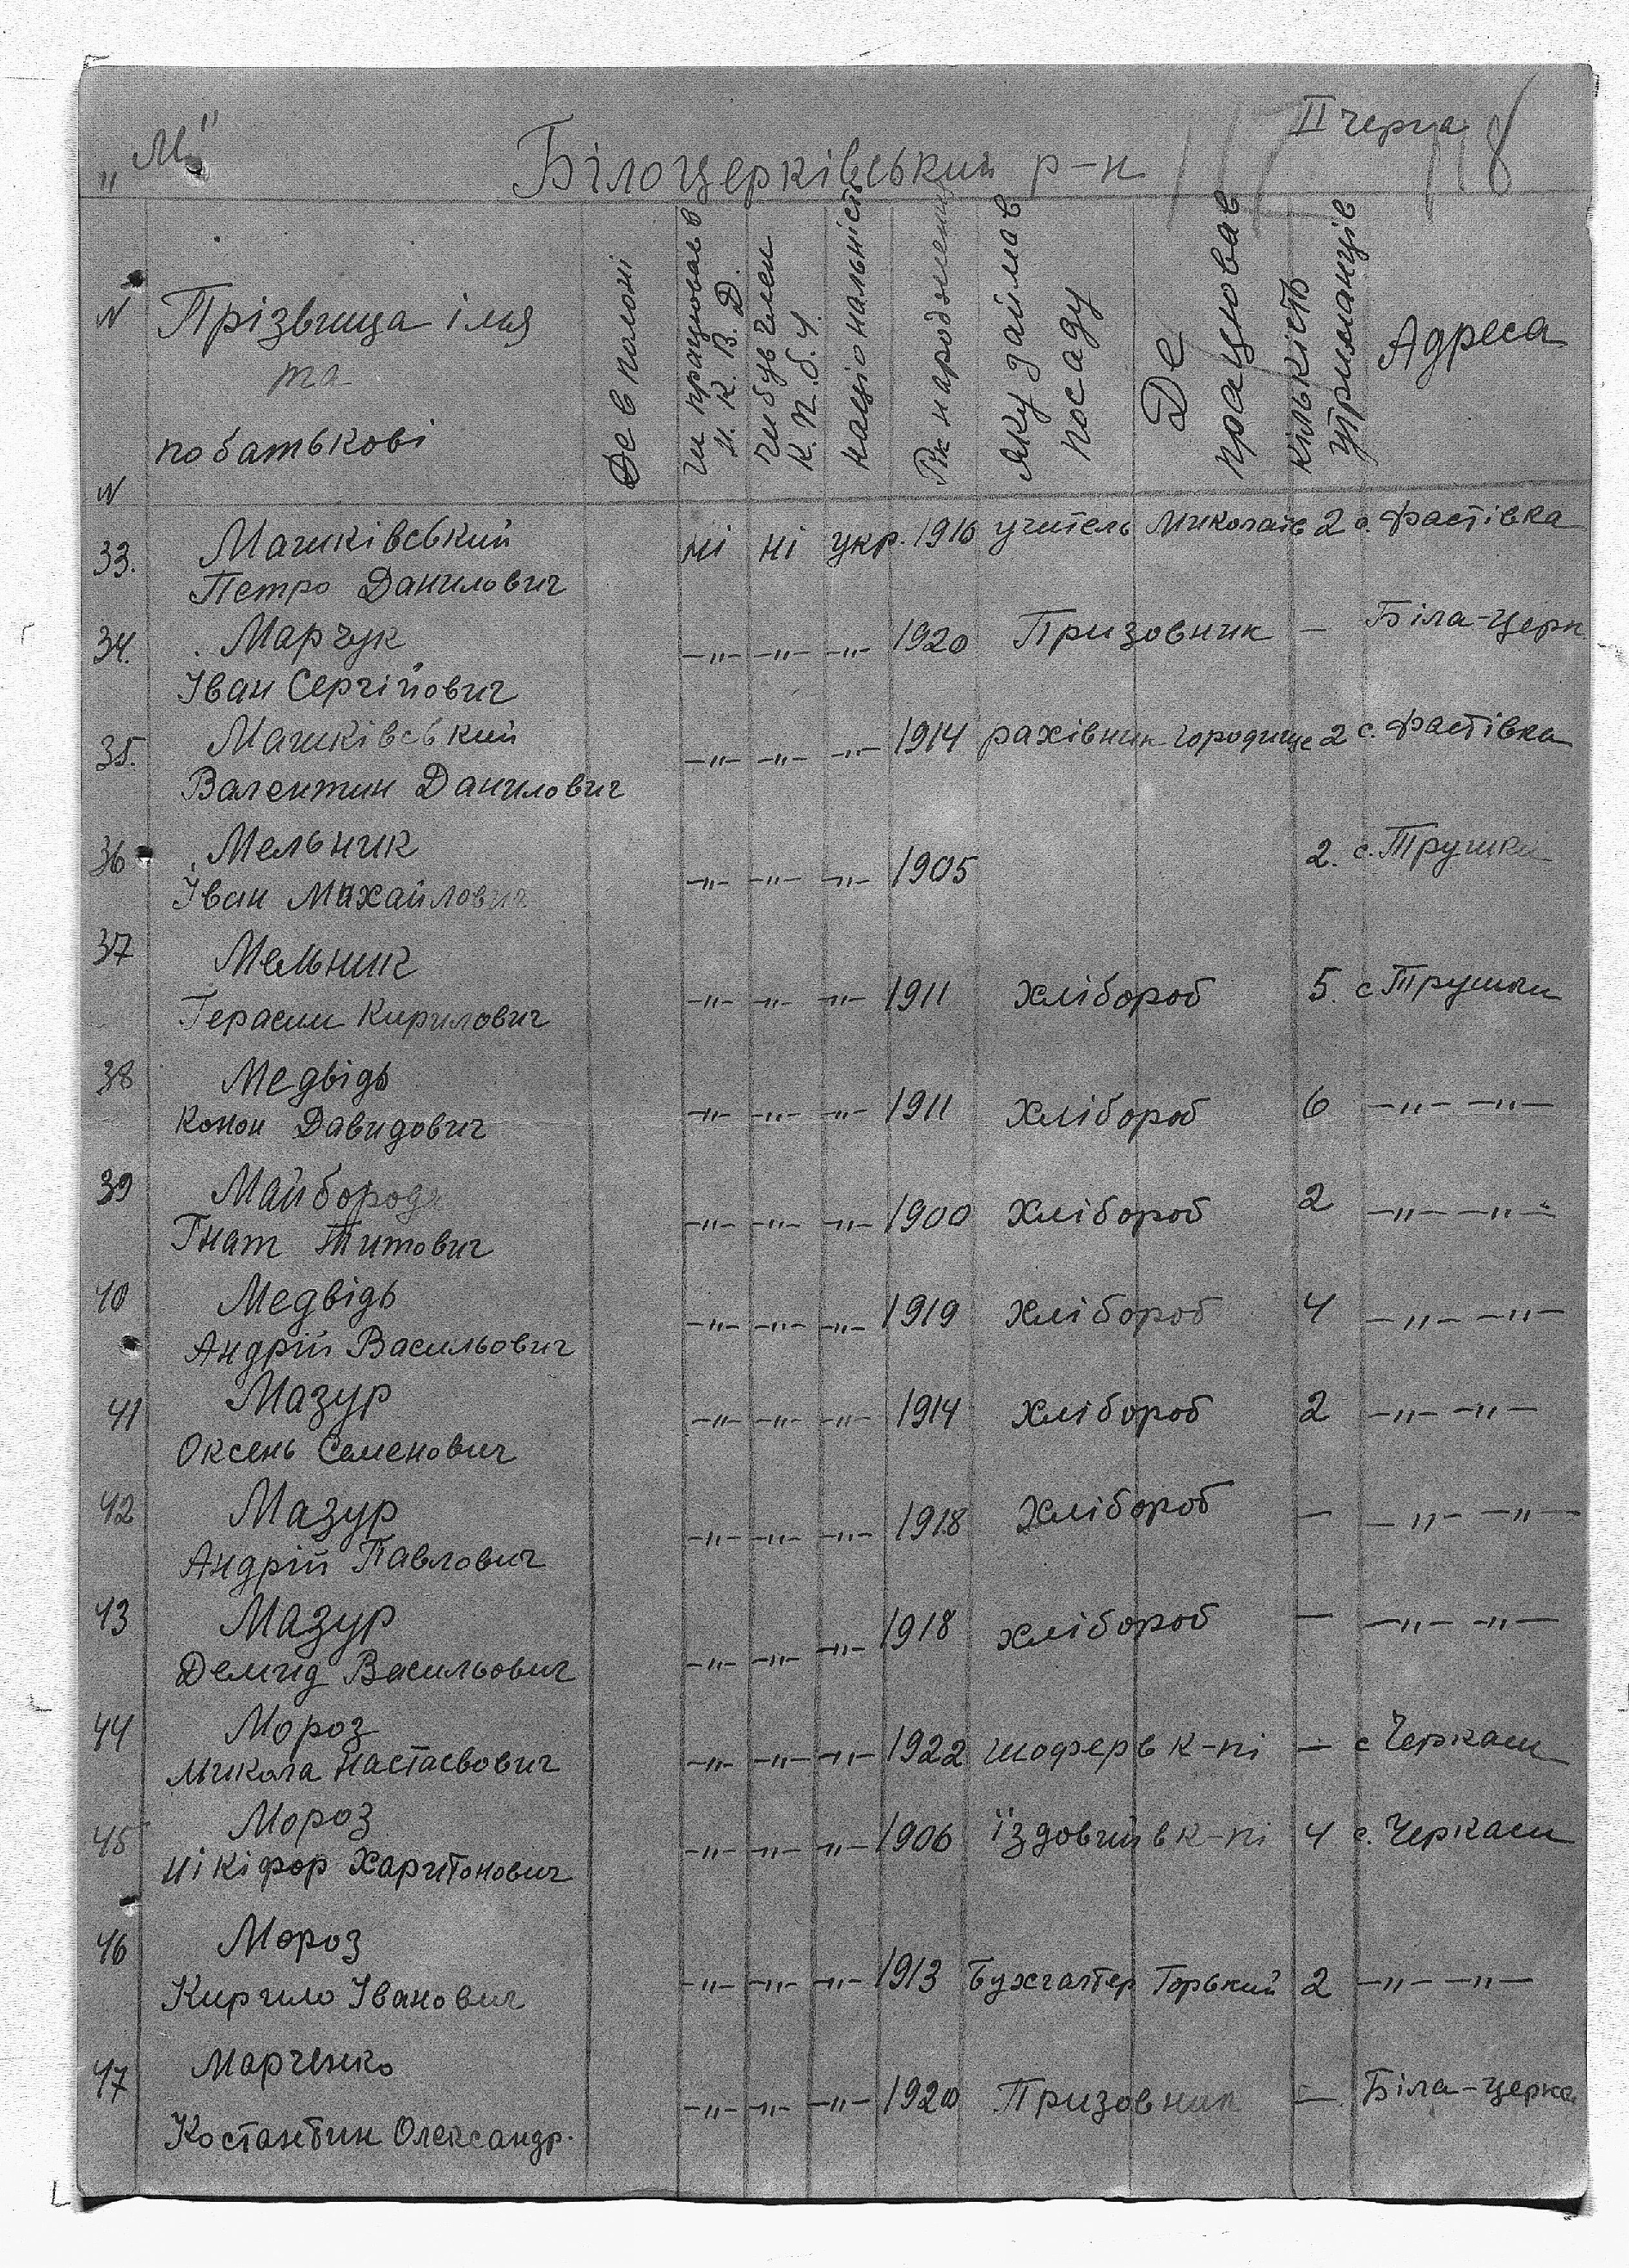 „М" Білоцерківський р-н II черга 118
N Прізвища імя та по батькові N Де в полоні чи працював в Н.К.В.Д. чи був член К.П.б.У. національність Рік народження Яку займав посаду Де працював кількість утриманців Адреса
33. Машківський ні ні укр. 1910 учитель Миколаїв 2 с. Фастівка
Петро Данилович
34. Марчук -"- -"- -"- 1920 Призовник - Біла-Церк
Іван Сергійович
35. Машківський -"- -"- -"- 1914 рахівник Городище 2 с. Фастівка
Валентин Данилович
36 Мельник -"- -"- -"- 1905 2. с. Трушки
Іван Михайлович
37 Мельник -"- -"- -"- 1911 хлібороб 5. с Трушки
Герасим Кирилович
38 Медвідь -"- -"- -"- 1911 хлібороб 6 -"- -"-
Конон Давидович
39 Майборода -"- -"- -"- 1900 хлібороб 2 -"- -"-
Гнат Титович
40 Медвідь -"- -"- -"- 1919 хлібороб 4 -"- -"-
Андрій Васильович
41 Мазур -"- -"- -"- 1914 хлібороб 2 -"- -"-
Оксень Семенович
42 Мазур -"- -"- -"- 1918 хлібороб - -"- -"-
Андрій Павлович
43 Мазур -"- -"- -"- 1918 хлібороб - -"- -"-
Демид Васильович
44 Мороз -"- -"- -"- 1922 шофер в к-пі - с Черкаси
Микола Настасвович
45 Мороз -"- -"- -"- 1906 їздовий в к-пі 4 с. Черкаси
Нікіфор Харитонович
46 Мороз -"- -"- -"- 1913 Бухгалтер Горький 2 -"- -"-
Кирило Іванович
47 Марченко -"- -"- -"- 1920 Призовник - Біла-церква
Костантин Олександр.